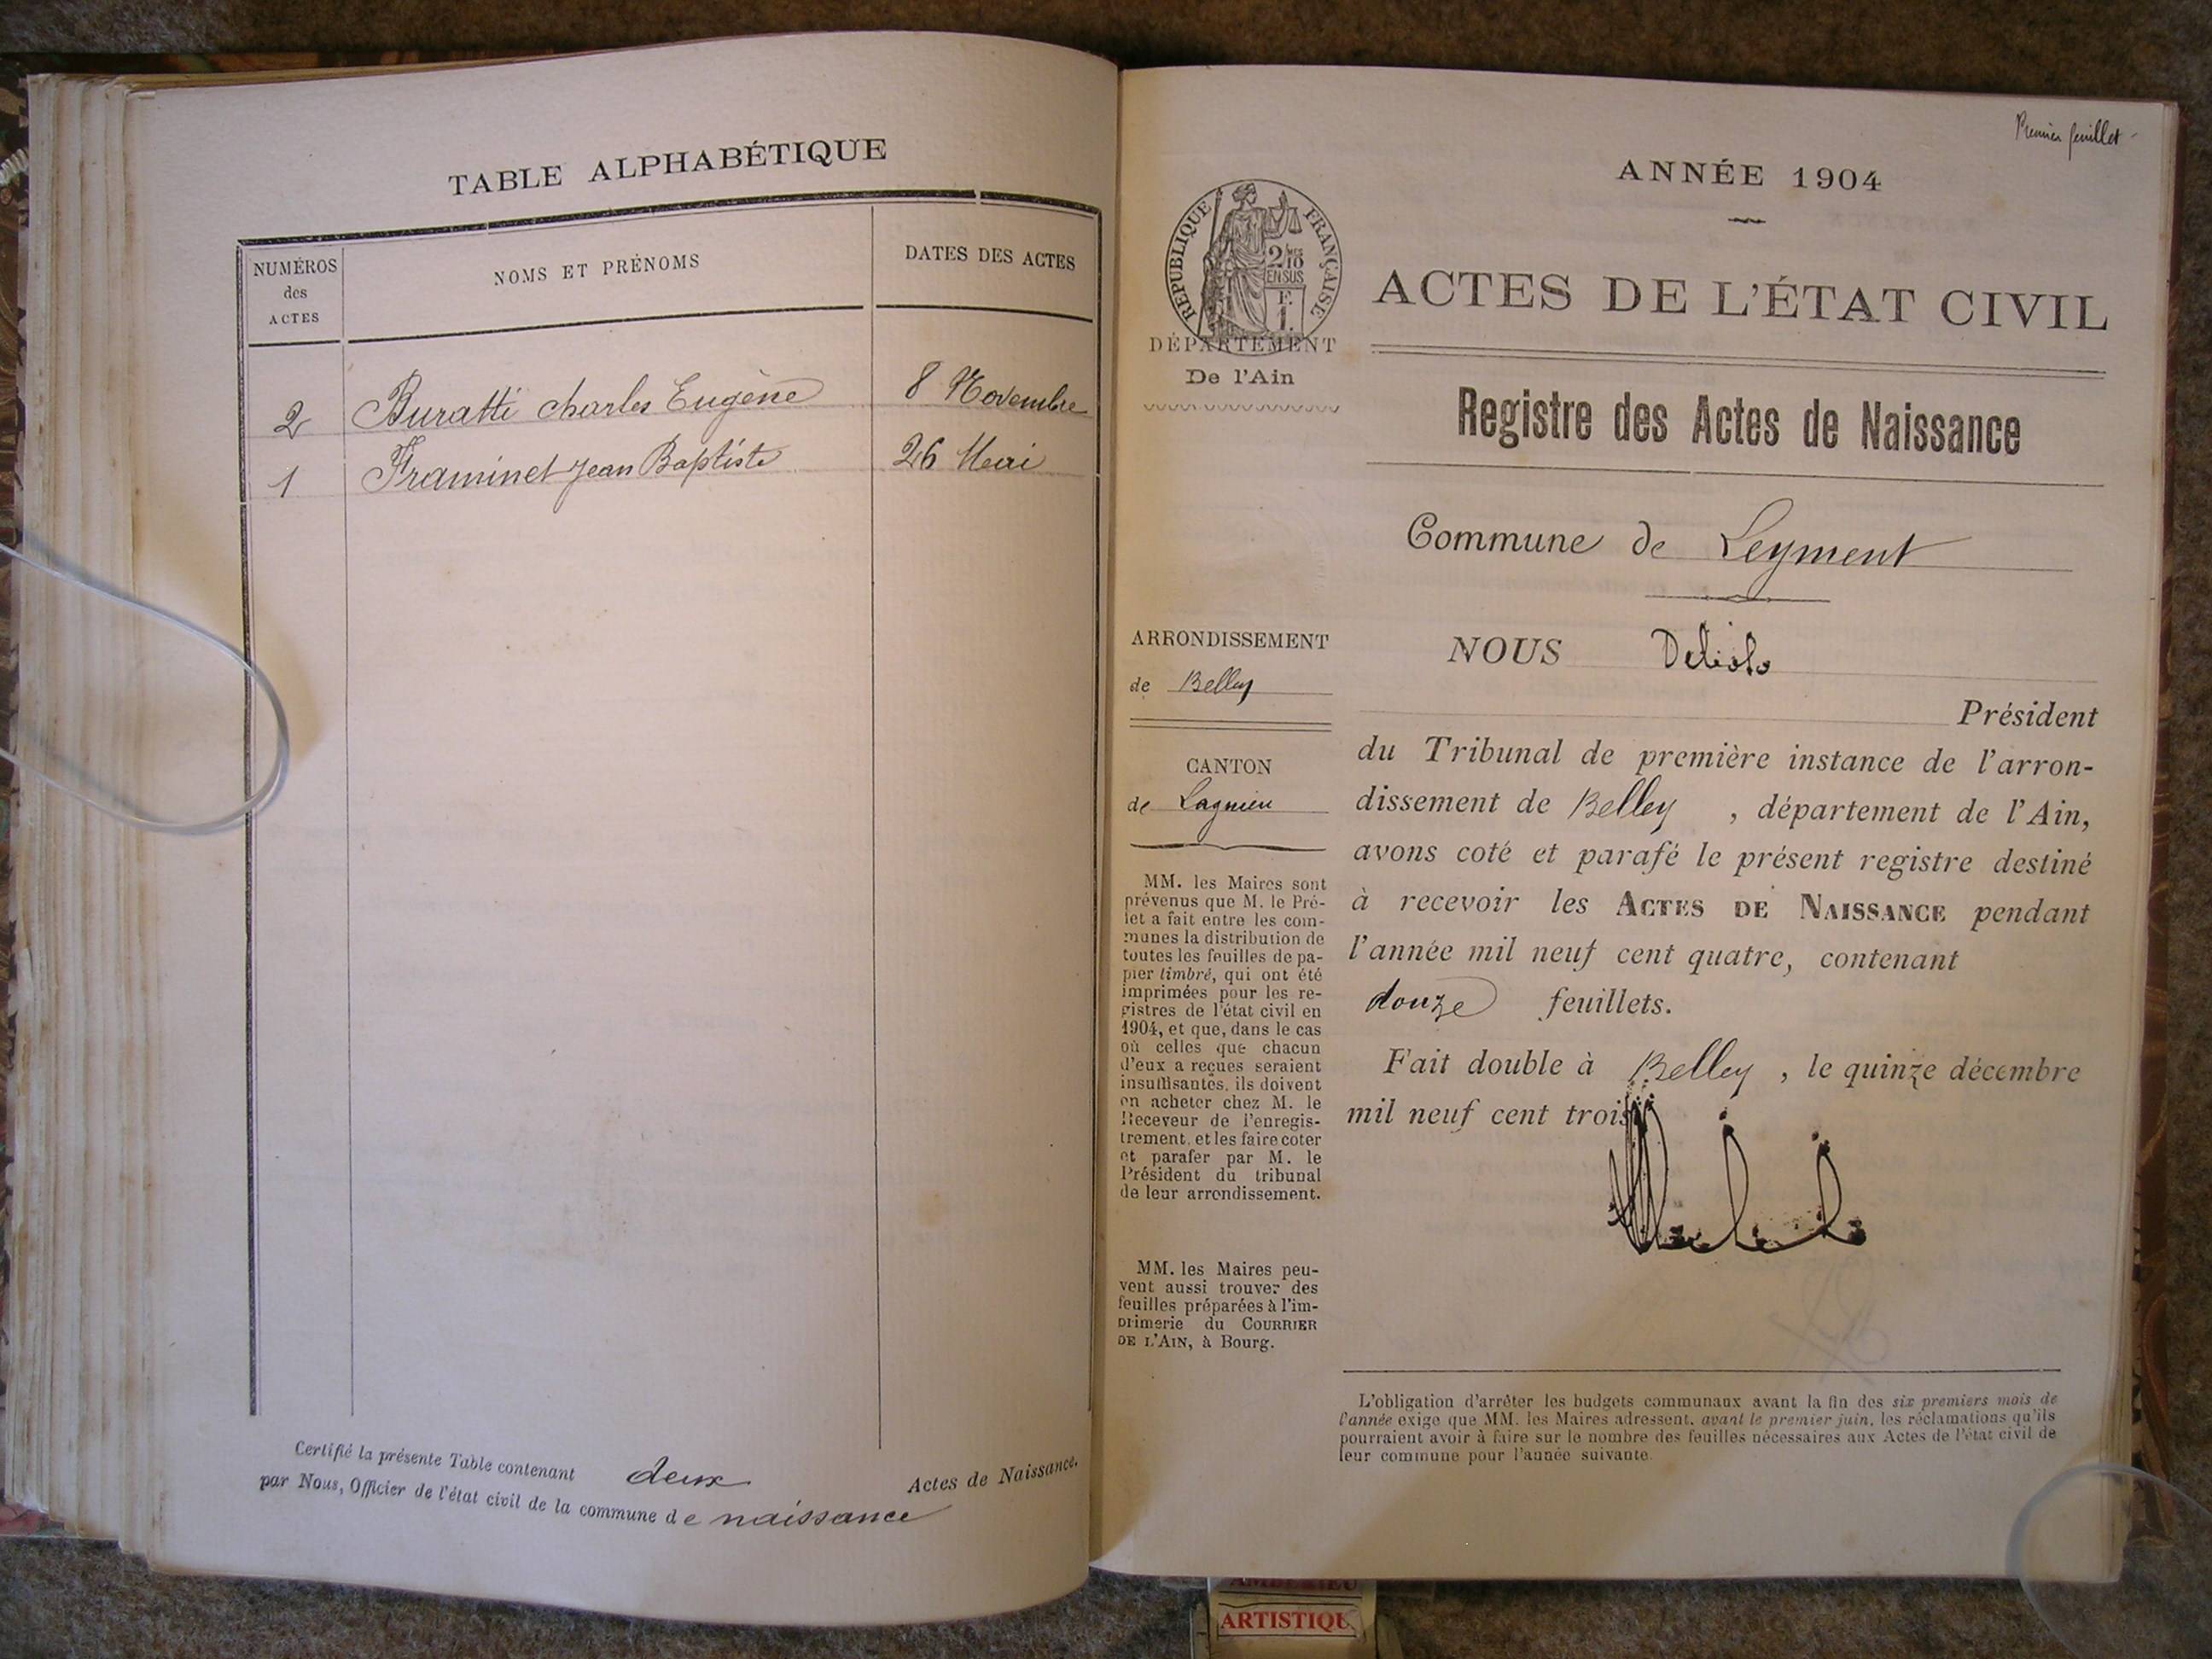 TABLE ALPHABÉTIQUE
NUMÉROS
des
ACTES
NOMS ET PRÉNOMS
DATES DES ACTES
2 Buratti Charles Eugène 8 Novembre
1 Framinet Jean Baptiste 26 Mai
Certifié la présente Table contenant deux Actes de Naissance.
par Nous, Officier de l'état civil de la commune de naissance
Premier feuillet
ANNÉE 1904
RÉPUBLIQUE FRANÇAISE
2/10
EN SUS
DÉPARTEMENT
De l'Ain
ACTES DE L'ÉTAT CIVIL
Registre des Actes de Naissance
Commune de Leyment
ARRONDISSEMENT
de Belley
CANTON
de Lagnieu
MM. les Maires sont
prévenus que M. le Pré-
fet a fait entre les com-
munes la distribution de
toutes les feuilles de pa-
pier timbré, qui ont été
imprimées pour les re-
gistres de l'état civil en
1904, et que, dans le cas
où celles que chacun
d'eux a reçues seraient
insuffisantes, ils doivent
en acheter chez M. le
Receveur de l'enregis-
trement, et les faire coter
et parafer par M. le
Président du tribunal
de leur arrondissement.
MM. les Maires peu-
vent aussi trouver des
feuilles préparées à l'im-
primerie du COURRIER
DE L'AIN, à Bourg.
NOUS
Président
du Tribunal de première instance de l'arron-
dissement de Belley , département de l'Ain,
avons coté et parafé le présent registre destiné
à recevoir les ACTES DE NAISSANCE pendant
l'année mil neuf cent quatre, contenant
douze feuillets.
Fait double à Belley , le quinze décembre
mil neuf cent trois
L'obligation d'arrêter les budgets communaux avant la fin des six premiers mois de
l'année exige que MM. les Maires adressent, avant le premier juin, les réclamations qu'ils
pourraient avoir à faire sur le nombre des feuilles nécessaires aux Actes de l'état civil de
leur commune pour l'année suivante.
ARTISTIQU